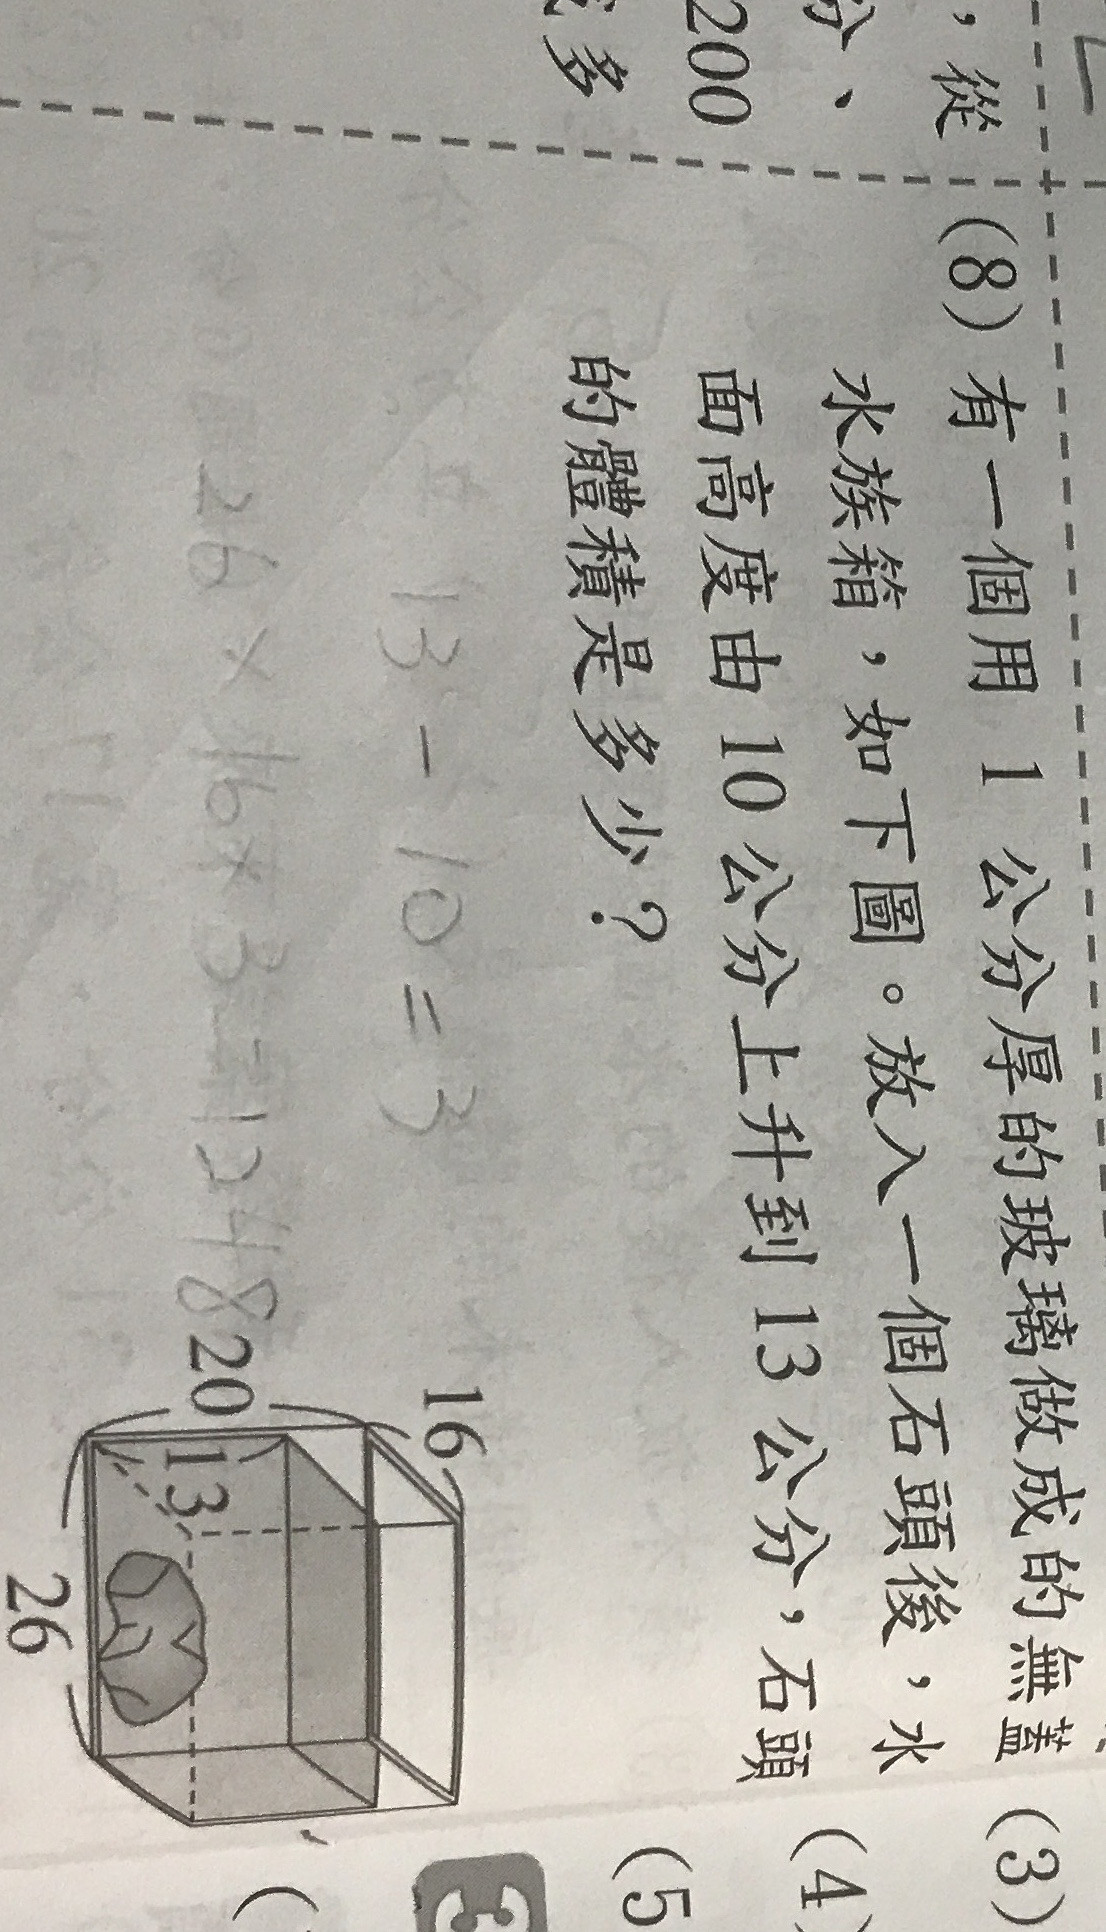 ，從
分、
200
多
(8) 有一個用 1 公分厚的玻璃做成的無蓋
水族箱，如下圖。放入一個石頭後，水
面高度由 10 公分上升到 13 公分，石頭
的體積是多少？
13 - 10 = 3
26 × 16 × 3 = 1248
16
20
13
26
(3)
(4)
(5